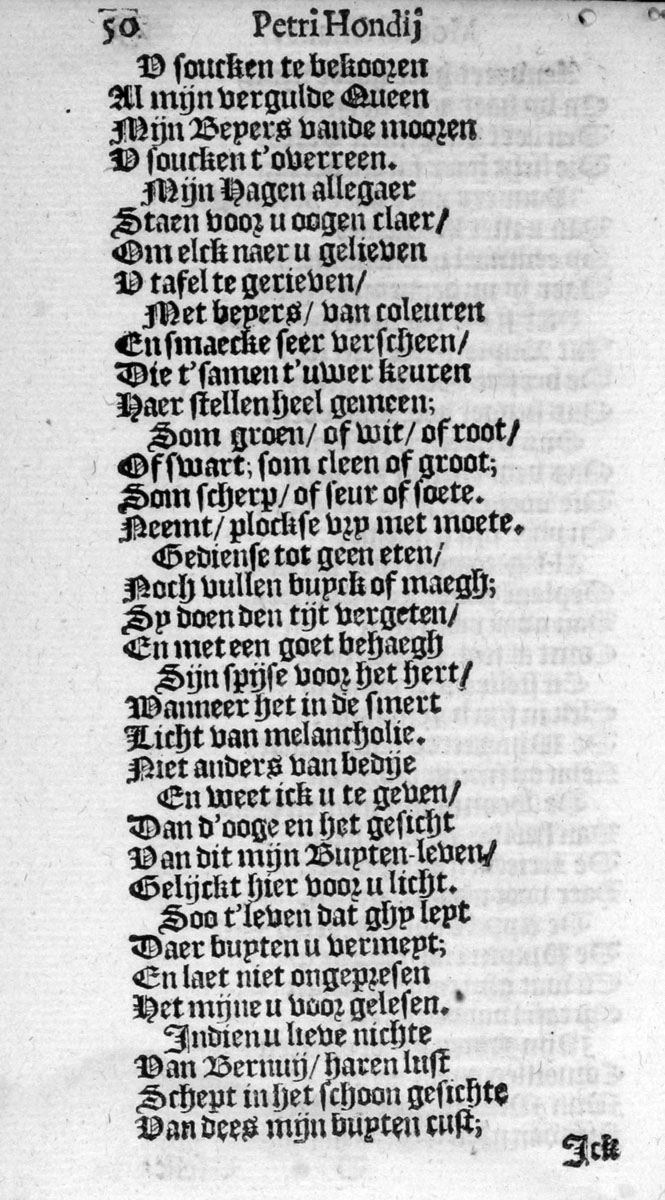 50 Petri Hondij
V soucken te bekooren
Al mijn vergulde Queen
Mijn Beyers vande mooren
V soucken t'overreen.
Mijn Hagen allegaer
Staen voor u oogen claer/
Om elck naer u gelieven
V tafel te gerieven/
Met beyers/ van coleuren
En smaecke seer verscheen/
Die t'samen t'uwer keuren
Haer stellen heel gemeen;
Som groen/ of wit/ of root/
Of swart; som cleen of groot;
Som scherp/ of seur of soete.
Neemt/ plockse vry met moete.
Gediense tot geen eten/
Noch vullen buyck of maegh;
Sy doen den tijt vergeten/
En met een goet behaegh
Sijn spijse voor het hert/
Wanneer het in de smert
Licht van melancholie.
Niet anders van bedije
En weet ick u te geven/
Dan d'ooge en het gesicht
Van dit mijn Buyten-leven/
Gelijckt hier voor u licht.
Soo t'leven dat ghy leyt
Daer buyten u vermeyt;
En laet niet ongepresen
Het mijne u voor gelesen.
Indien u lieve nichte
Van Bernuij/ haren lust
Schept in het schoon gesichte
Van dees mijn buyten rust;
Ick